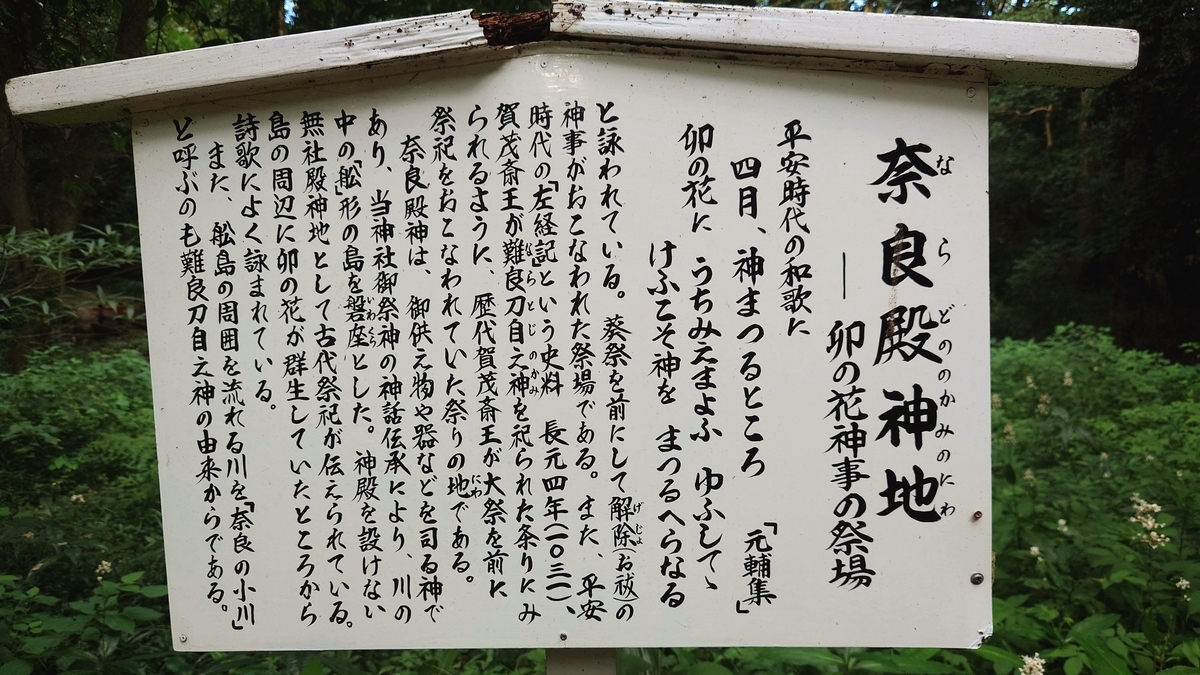 奈良殿神地
などのかみのにわ
―卯の花神事の祭場
平安時代の和歌に
四月、神まつるところ 「元輔集」
卯の花に うちみえまよふ ゆふしてゝ
けふこそ神を まつるへらなる
と詠われている。葵祭を前にして解除(お祓)の
神事がおこなわれた祭場である。また、平安
時代の「左経記」という史料 長元四年(一〇三一)、
賀茂斎王が難良刀自之神を祀られた条りにみ
られるように、歴代賀茂斎王が大祭を前に
祭祀をおこなわれていた祭りの地である。
奈良殿神は、御供え物や器などを司る神で
あり、当神社御祭神の神話伝承により、川の
中の「舩」形の島を磐座とした。神殿を設けない
無社殿神地として古代祭祀が伝えられている。
島の周辺に卯の花が群生していたところから
詩歌によく詠まれている。
また、舩島の周囲を流れる川を「奈良の小川」
と呼ぶのも難良刀自之神の由来からである。